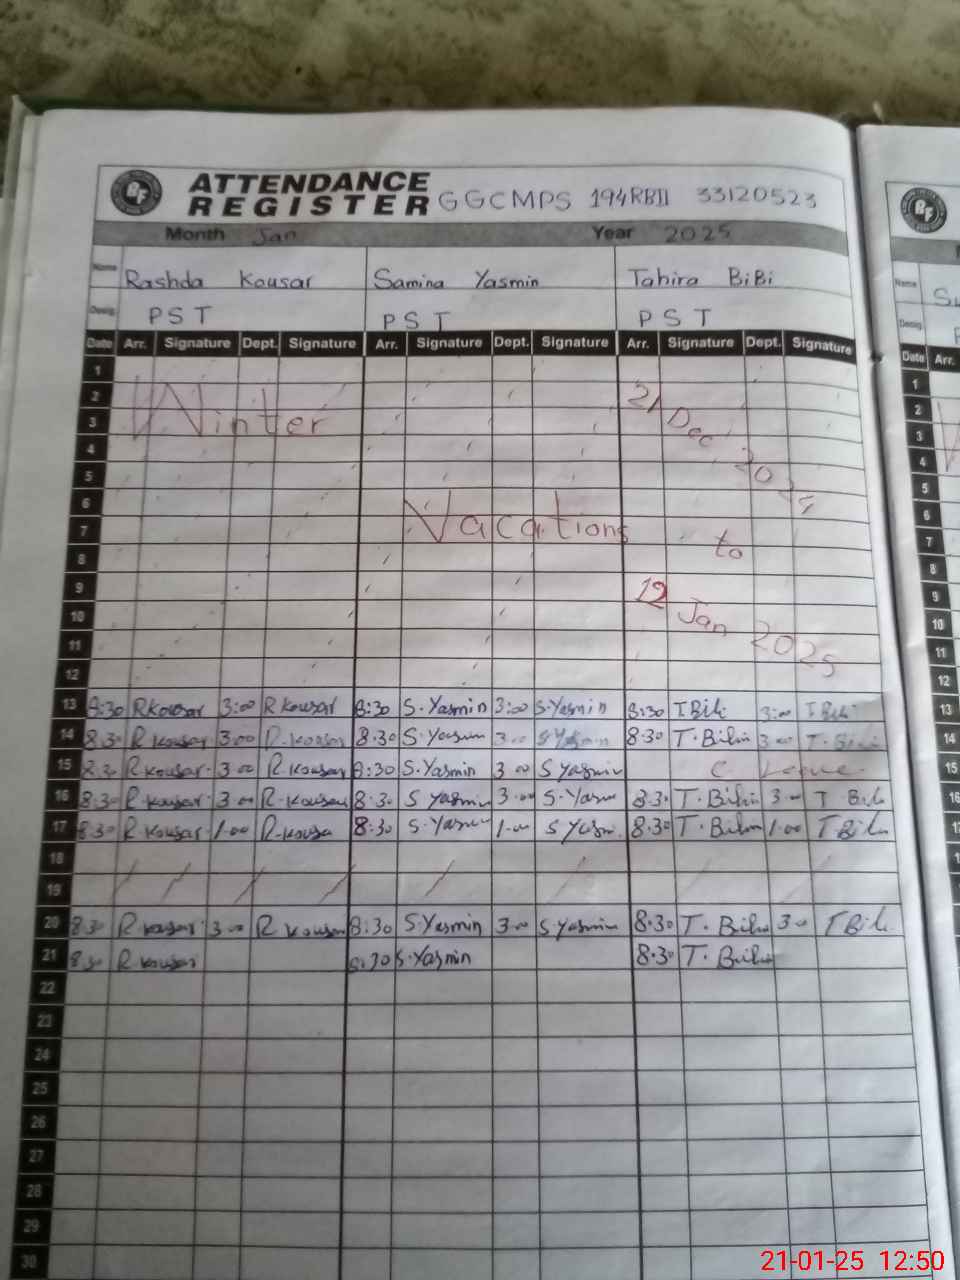 ATTENDANCE
REGISTER GGCMPS 194RBII 33120523
Month Jan Year 2025
Name Rashda Kousar Samina Yasmin Tahira BiBi
Desig. PST PST PST
Date Arr. Signature Dept. Signature Arr. Signature Dept. Signature Arr. Signature Dept. Signature
1
2 Winter 21 Dec
3
4
5
6 Vacations
7 to
8
9 12 Jan 2025
10
11
12
13 8:30 R Kousar 3:00 R Kousar 8:30 S.Yasmin 3:00 S.Yasmin 8:30 T.Bibi 3:00 T Bibi
14 8.30 R Kousar 3.00 R.Kousar 8.30 S.Yasmin 3.00 S.Yasmin 8.30 T.Bibi 3.00 T.Bibi
15 8.30 R Kousar 3.00 R Kousar 8:30 S.Yasmin 3.00 S Yasmin C. Leave
16 8:30 R.Kousar 3.00 R.Kousar 8:30 S Yasmin 3.00 S.Yasmin 8.30 T.Bibi 3.00 T Bibi
17 8:30 R.Kousar 1.00 R.Kousar 8:30 S.Yasmin 1.00 S Yasmin 8.30 T.Bibi 1.00 T Bibi
18
19
20 8.30 R Kousar 3.00 R Kousar 8:30 S.Yasmin 3.00 S.Yasmin 8.30 T.Bibi 3.00 T Bibi
21 8.30 R.Kousar 8:30 S.Yasmin 8.30 T.Bibi
22
23
24
25
26
27
28
29
30
Name
Desig.
Date Arr.
1
2
3
4
5
6
7
8
9
10
11
12
13
14
15
16
17
21-01-25 12:50